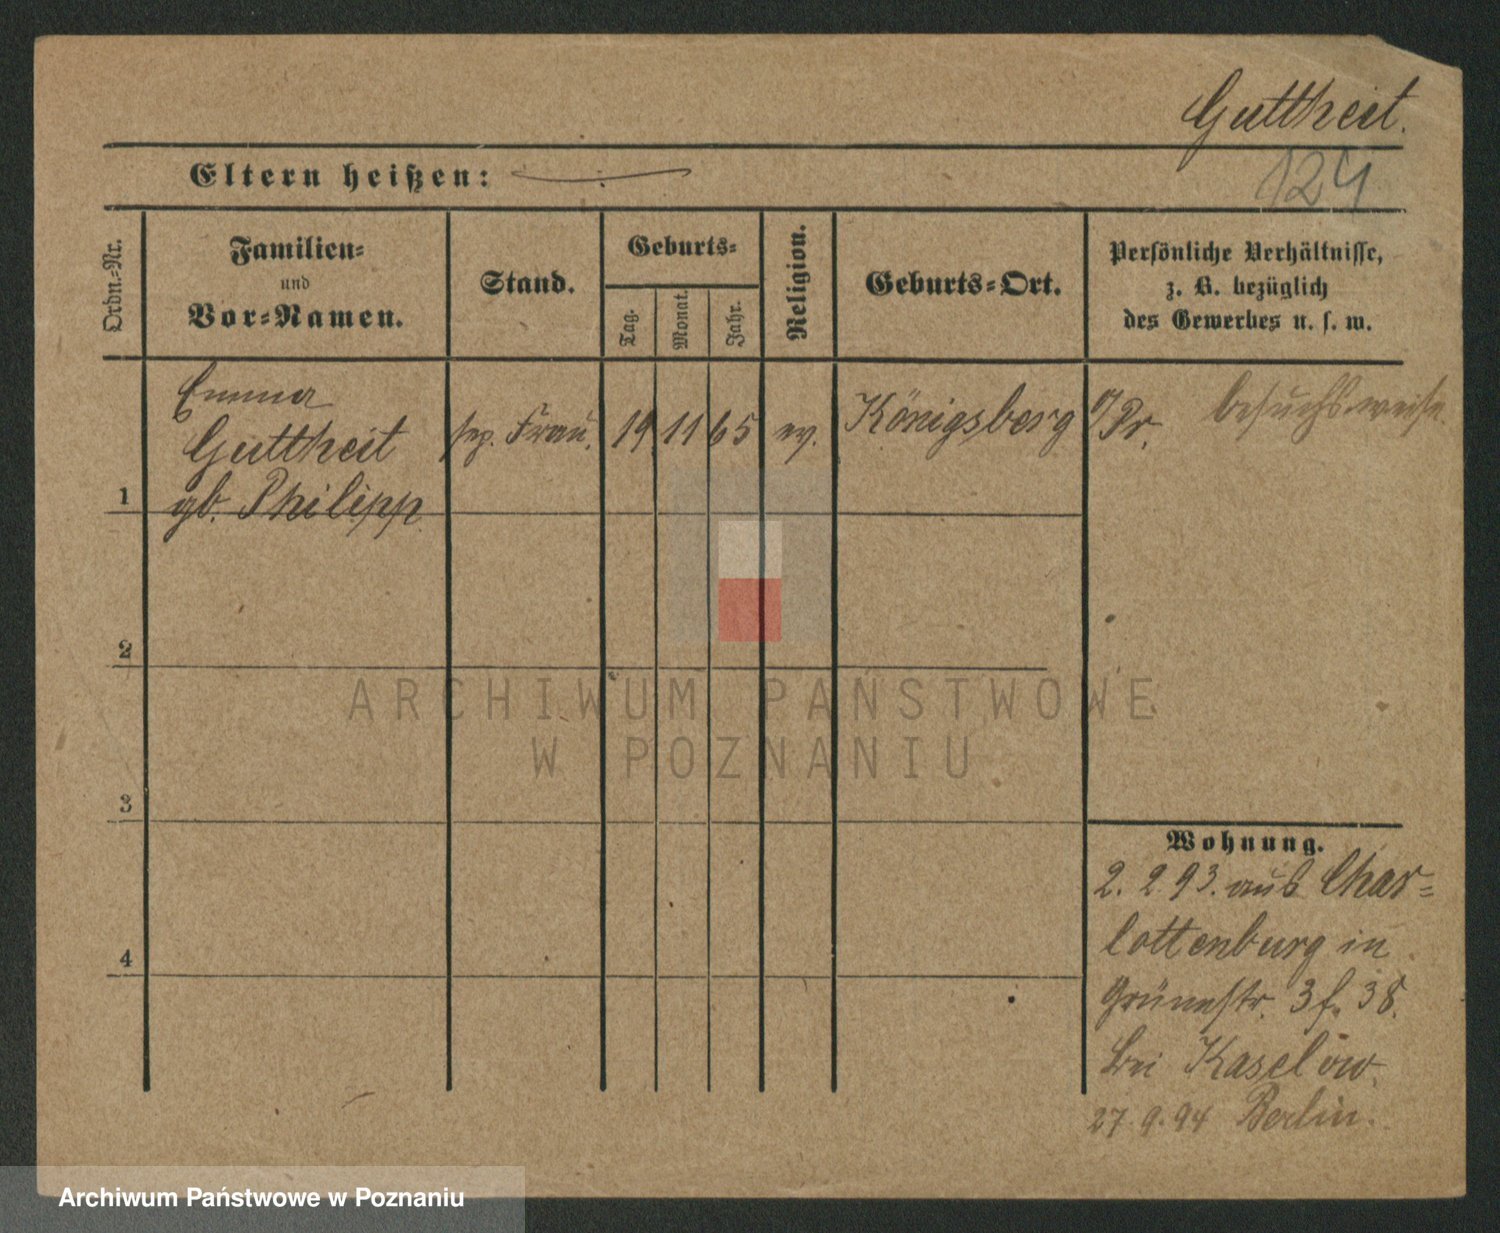 Guttheit.
124
Eltern heißen:
Ordn.-Nr.
Familien-
und
Vor-Namen.
Stand.
Geburts-
Tag.
Monat.
Jahr.
Religion.
Geburts-Ort.
Persönliche Verhältnisse,
z. B. bezüglich
des Gewerbes u. s. w.
Emma
Guttheit
gb. Philipp
sep. Frau. 19 11 65 ev. Königsberg o/Pr. besuchsweise.
1
2
3
4
Wohnung.
2. 2. 93. aus Char=
lottenburg in
Grünestr. 3 f. 38.
bei Kaselow.
27. 9. 94 Berlin.
ARCHIWUM PAŃSTWOWE
W POZNANIU
Archiwum Państwowe w Poznaniu